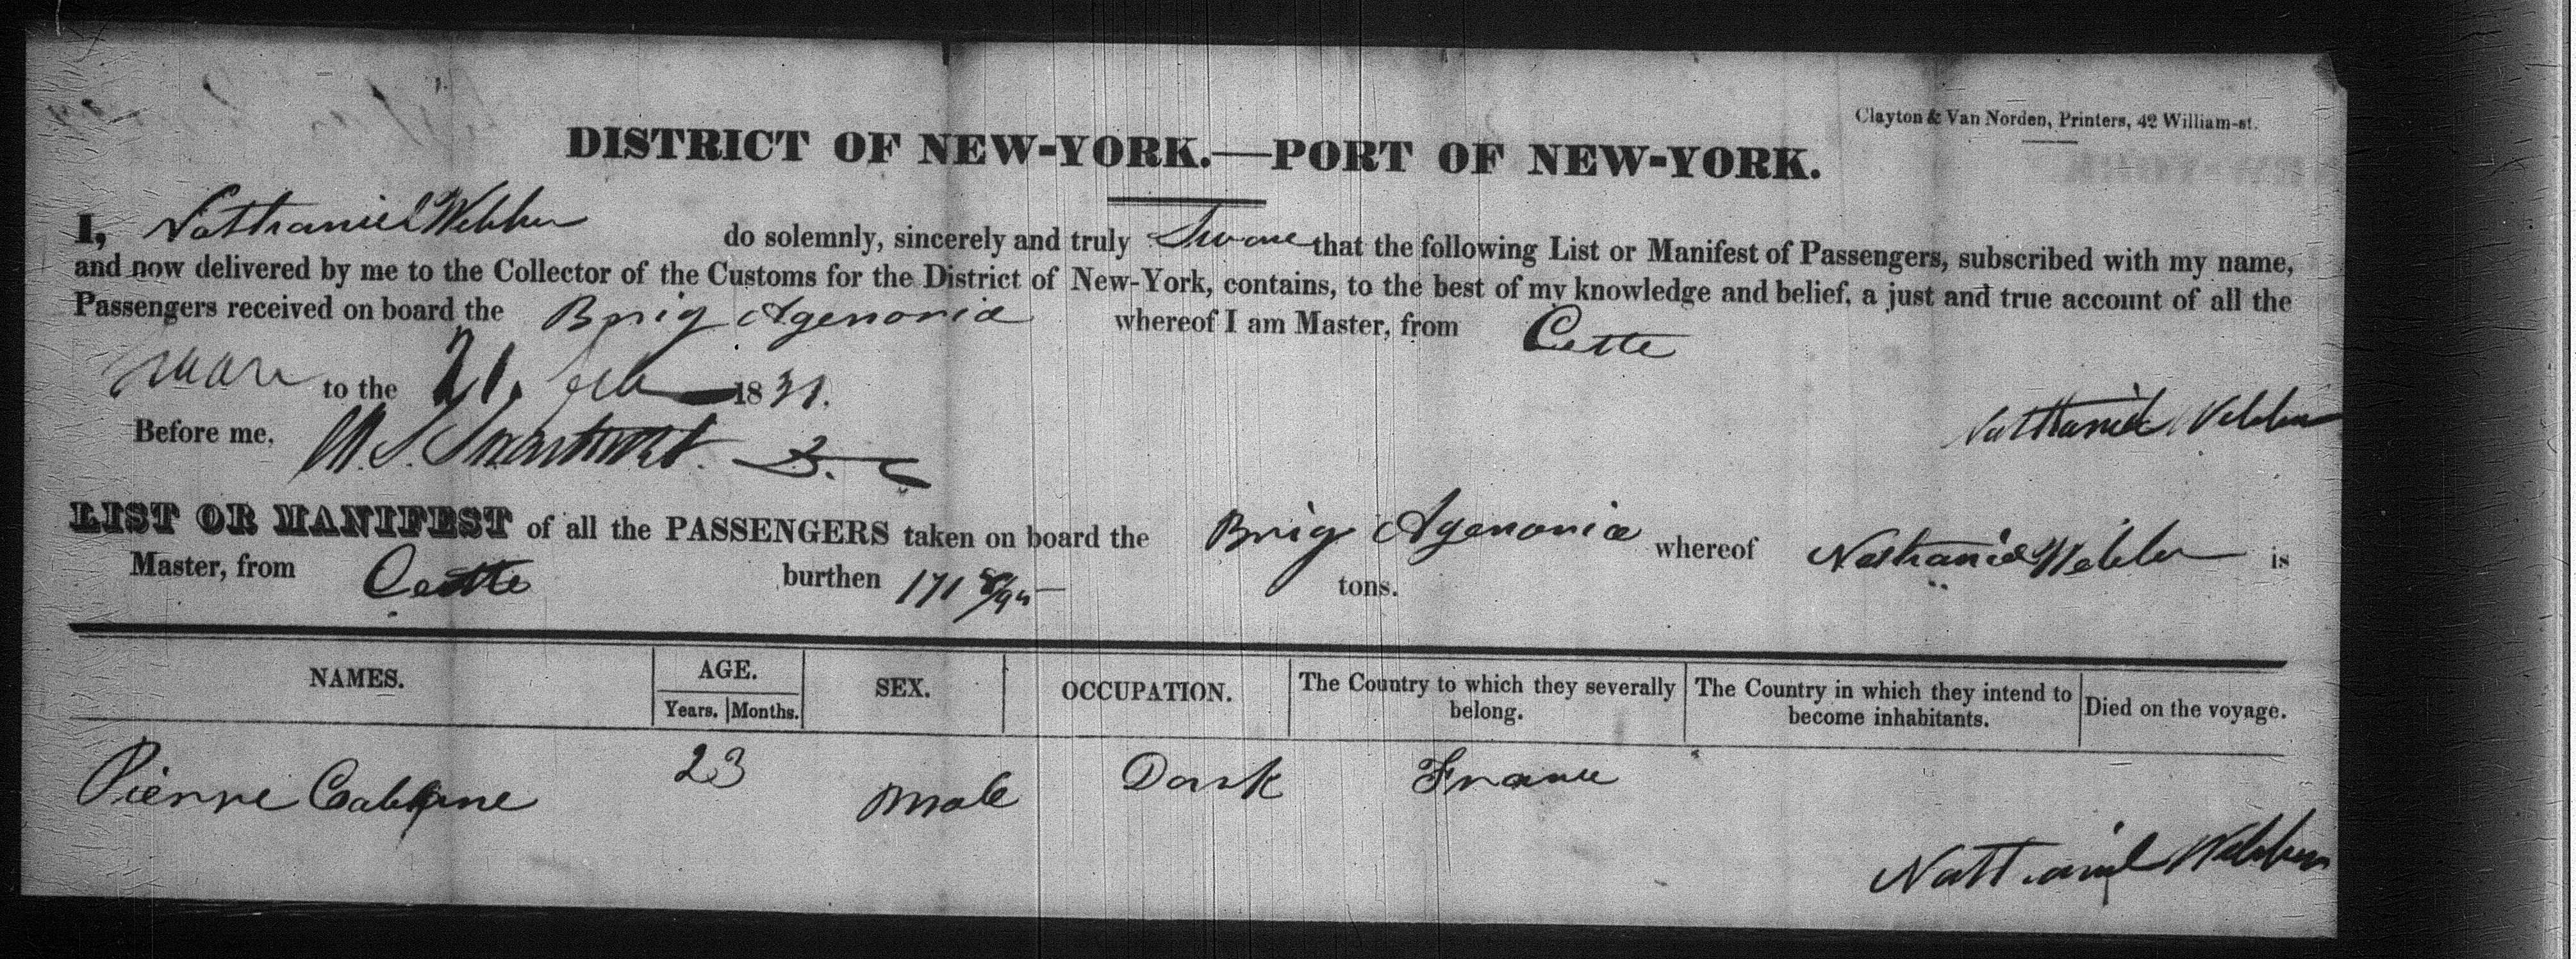 Clayton & Van Norden, Printers, 42 William-st.
DISTRICT OF NEW-YORK.—PORT OF NEW-YORK.
I, Nathaniel Webber do solemnly, sincerely and truly Sware that the following List or Manifest of Passengers, subscribed with my name,
and now delivered by me to the Collector of the Customs for the District of New-York, contains, to the best of my knowledge and belief, a just and true account of all the
Passengers received on board the Brig Agenoria whereof I am Master, from Cette
to the 21. Feb 1831.
Nathaniel Webber
Before me,
LIST OR MANIFEST of all the PASSENGERS taken on board the Brig Agenoria whereof Nathaniel Webber is
Master, from Cette burthen 171 8/95 tons.
NAMES. AGE. SEX. OCCUPATION. The Country to which they severally belong. The Country in which they intend to become inhabitants. Died on the voyage.
Years. Months.
Pierre 23 Male Dark France
Nathaniel Webber